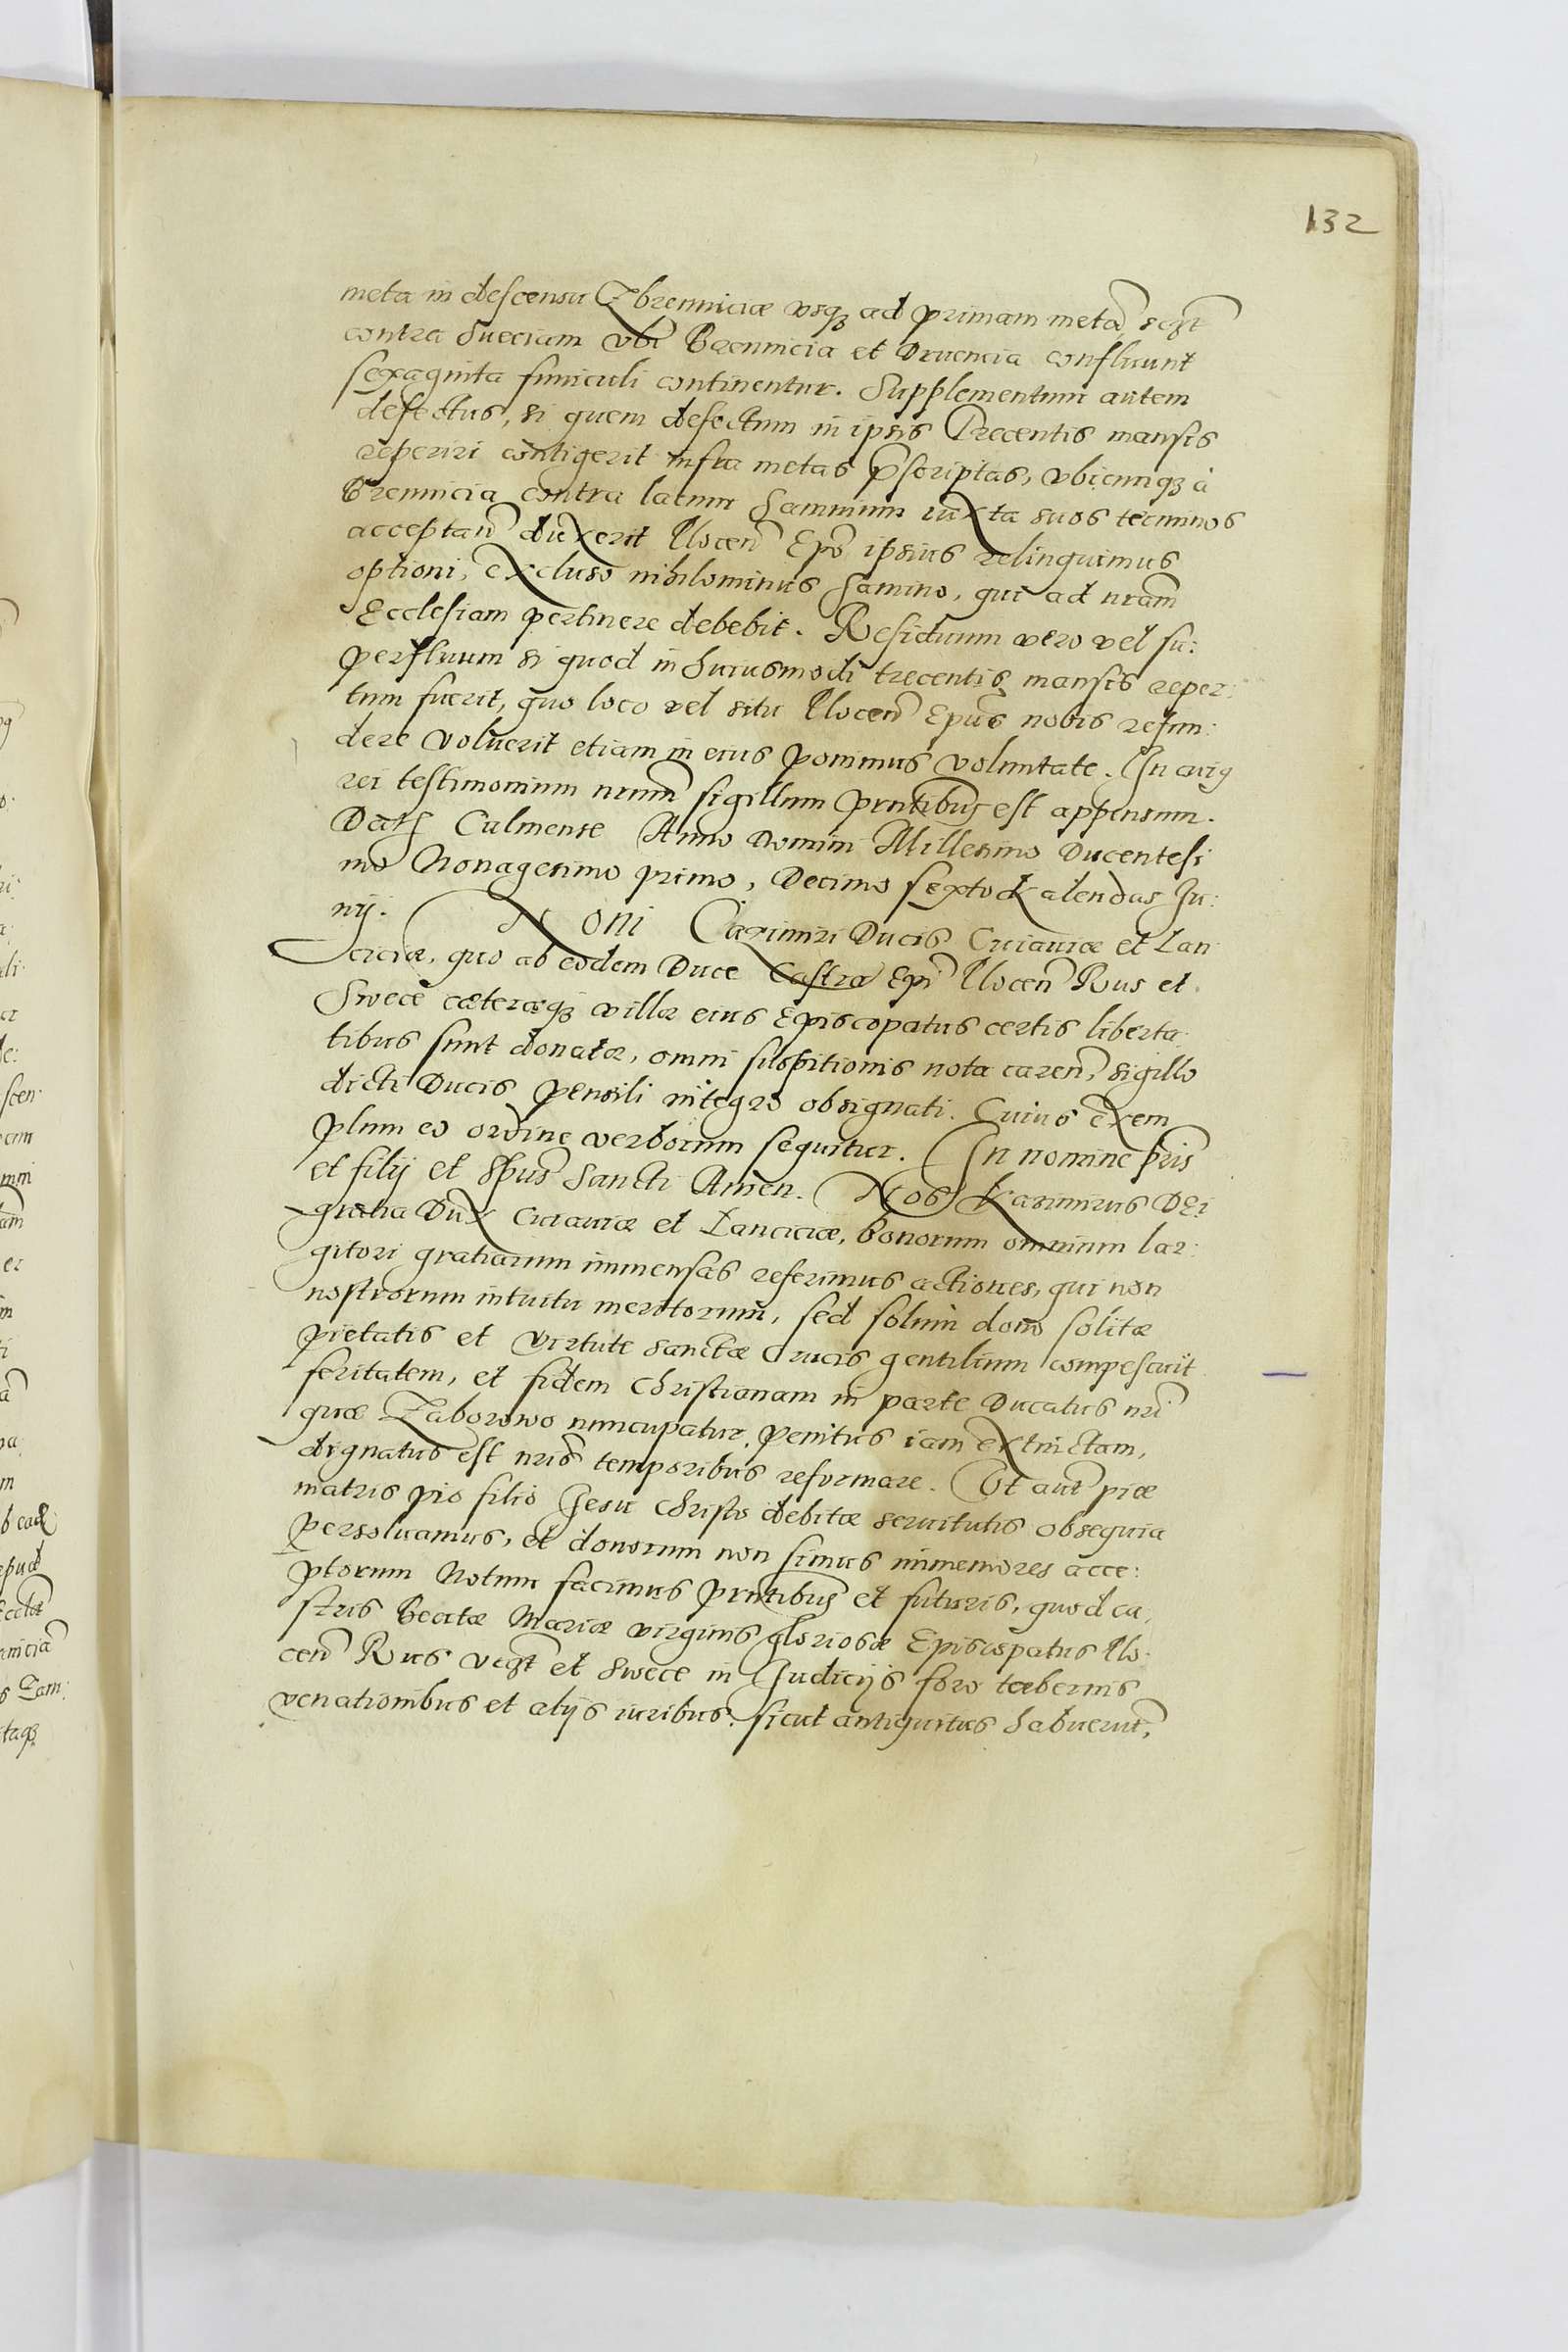 132
meta in descensu Zbrenniciæ vsq₃ ad primam metã sczt
contra Sueciam vbi Brennicia et Druencia confluunt
sexaginta funiculi continentur. Supplementum autem
defectus, si quem defectum in ipsis Trecentis mansis
reperiri contigerit infra metas p̃scriptas, vbicumq₃ à
Brennicia contra lacum Samnium iuxta suos terminos
acceptan̄ duxerit Plocen̄ Ep̃o ipsius relinquimus
optioni, excluso nihilominus Samino, qui ad nram̃
Ecclesiam pertinere debebit. Residuum vero vel su:
perfluum si quod in huiusmodi trecentis mansis reper:
tum fuerit, quo loco vel situ Plocen̄ Epũs nobis refun:
dere voluerit etiam in eius ponimus voluntate. In cuiꝰ
rei testimonium nrum̃ sigillum prntibus̃ est appensum.
Dat̃ Culmense Anno Domini Millesimo Ducentesi
mo Nonagesimo primo, Decimo sexto Kalendas Ju:
nij. Noni Cazimiri Ducis Cuiauiæ et Lan
ciciæ, quo ab eodem Duce Castra Epĩ Plocen̄ Rus et
Swece cæteræq₃ villæ eius Episcopatus certis liberta:
tibus sunt donatæ, omni suspitionis nota caren̄, sigillo
dicti Ducis pensili integro obsignati. Cuius exem
plum eo ordine verborum sequitur. In nomine pris̃
et filij et Spũs Sancti Amen. Nos Kasimirus DEI
gratia Dux Cuiauiæ et Lanciciæ, bonorum omnium lar:
gitori gratiarum immensas referimus actiones, qui non
nostrorum intuitu meritorum, sed solum dono solitæ
pietatis et virtute sanctæ Crucis gentilium compescuit
feritatem, et fidem Christianam in parte Ducatus nrĩ
quæ Zaborowo nuncupatur, penitus iam extinctam,
dignatus est nris̃ temporibus reformare. Vt aut̃ piæ
matris pio filio Jesu Christo debitæ seruitutis obsequia
persoluamus, et donorum non simus immemores acce:
ptorum Notum facimus prntibus̃ et futuris, quod ca
stris Beatæ Mariæ virginis gloriosæ Episcopatus Plo:
cen̄ Rus vczt et Swece in Judicijs foro tabernis
venationibus et alijs iuribus, sicut antiquitus habuerut̃,